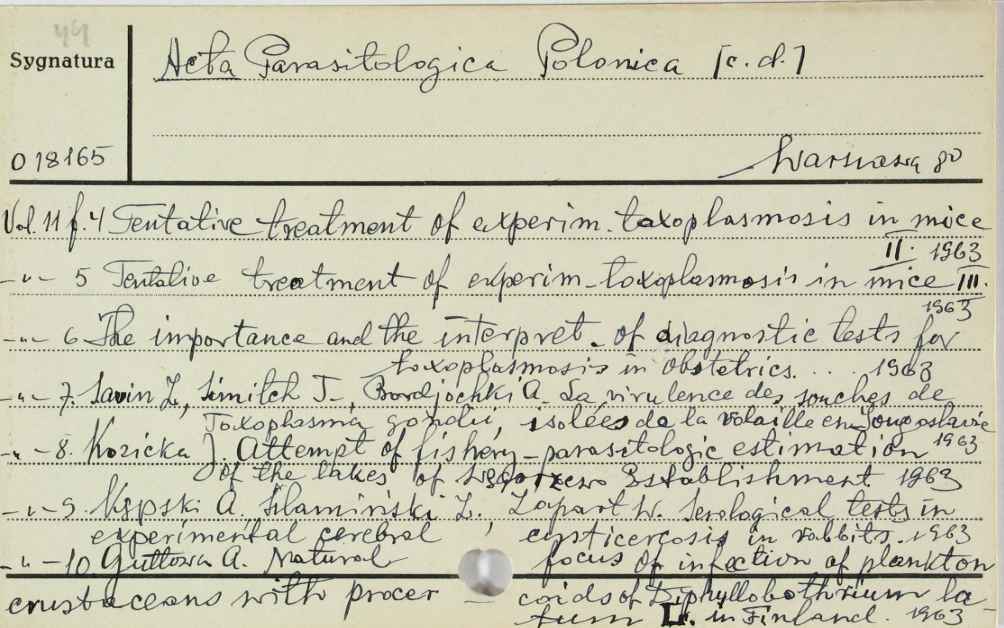 49
Sygnatura
Acta Parasitologica Polonica [c.d.]
018165
Warszawa 80
Vol. 11 f. 4 Tentative treatment of experim. toxoplasmosis in mice
II. 1963
-"- 5 Tentative treatment of experim. toxoplasmosis in mice III.
1963
-"- 6 The importance and the interpret. of diagnostic tests for
toxoplasmosis in obstetrics. . . . 1963
-"- 7. Savin Z., Simitch T., Bordjochki A. La virulence des souches de
Toxoplasma gondii, isolées de la volaille en Jougoslavie
-"- 8. Kozicka J. Attempt of fishery-parasitologic estimation 1963
of the lakes of Węgorzewo Establishment 1963
-"- 9. Kępski A. Slamiński Z., Zapart W. Serological tests in
experimental cerebral cysticercosis in rabbits. 1963
-"- 10 Guttowa A. Natural focus of infection of plankton
crustaceans with procer - coids of Diphyllobothrium la-
tum L. in Finland. 1963